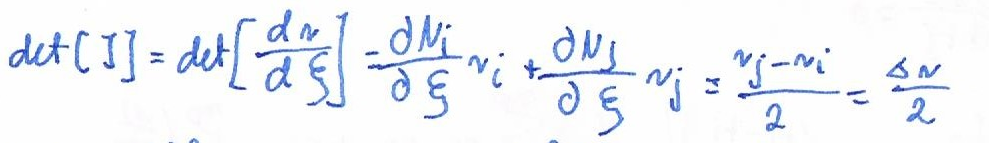 det[J] = det[dr/dξ] = ∂Ni/∂ξ ri + ∂Nj/∂ξ rj = (rj - ri)/2 = Δr/2